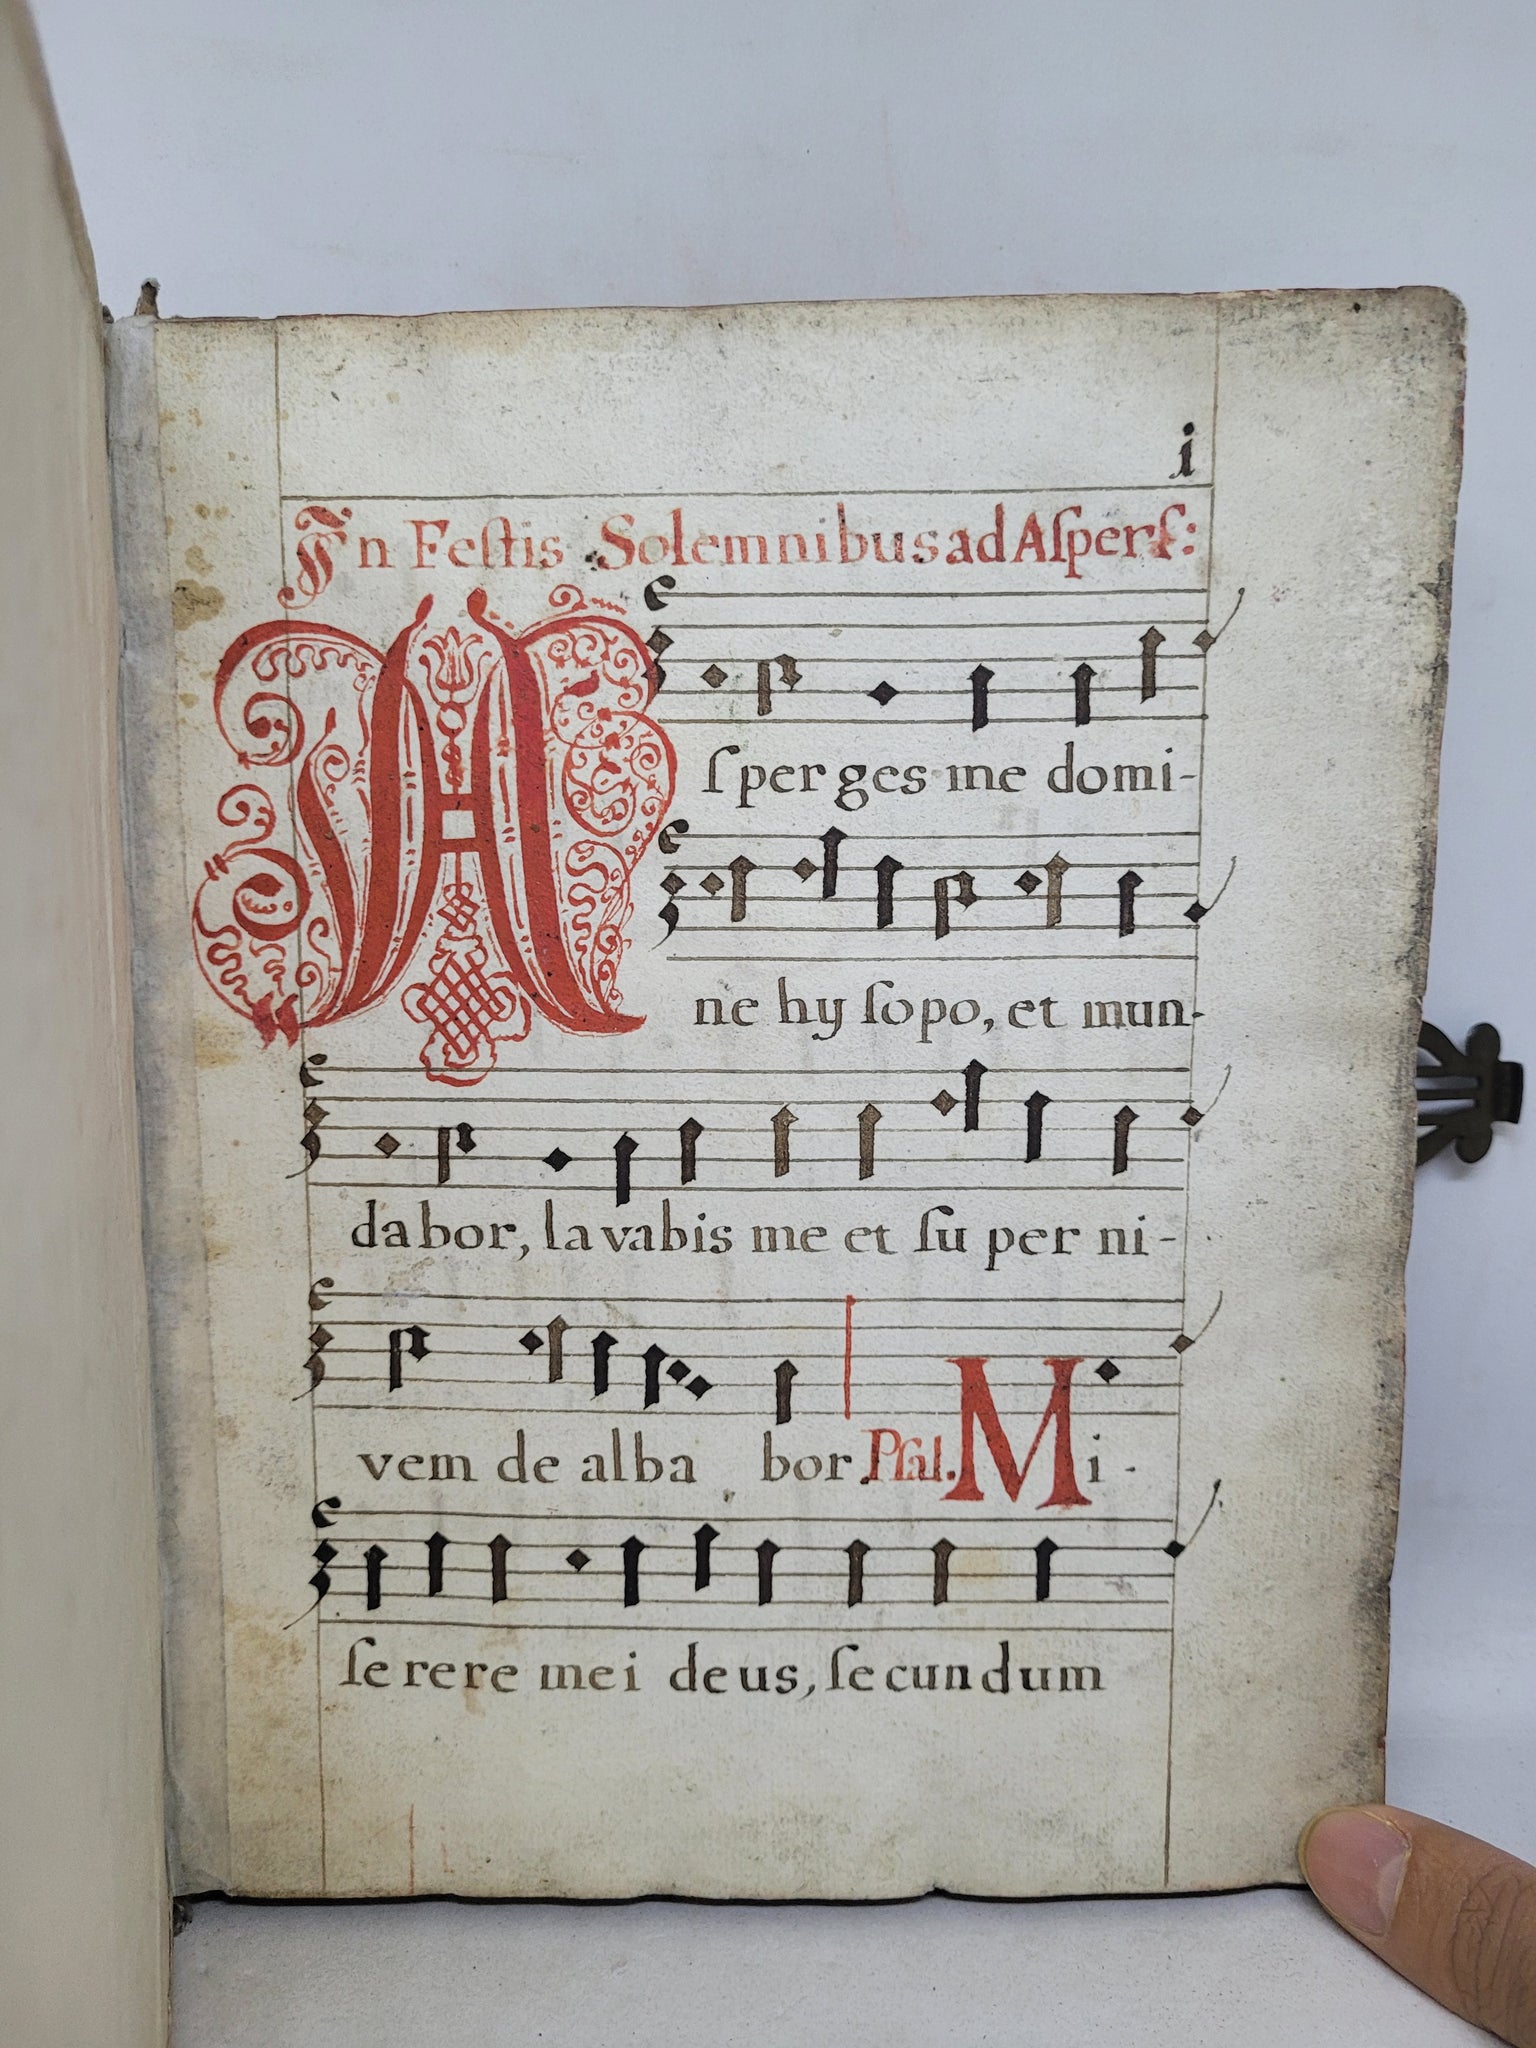 i
In Feſtis Solemnibus ad Aſperſ:
A
ſper ges me domi-
ne hy ſopo, et mun-
dabor, la vabis me et ſu per ni-
vem de alba bor. Pſal. Mi-
ſe rere mei deus, ſe cundum